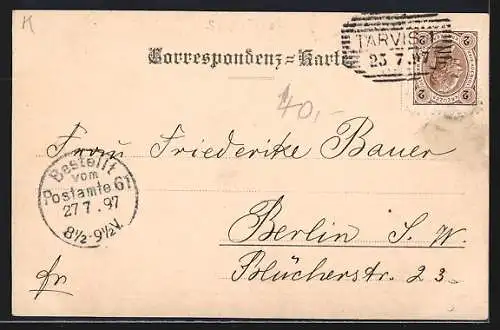 K
Correspondenz-Karte
TARVIS
25 7.97
2 2
40,-
Frau Friederike Bauer
Bestellt
vom
Postamte 61
27 7. 97
8½-9½V.
Berlin S. W.
Blücherstr. 23.
fr